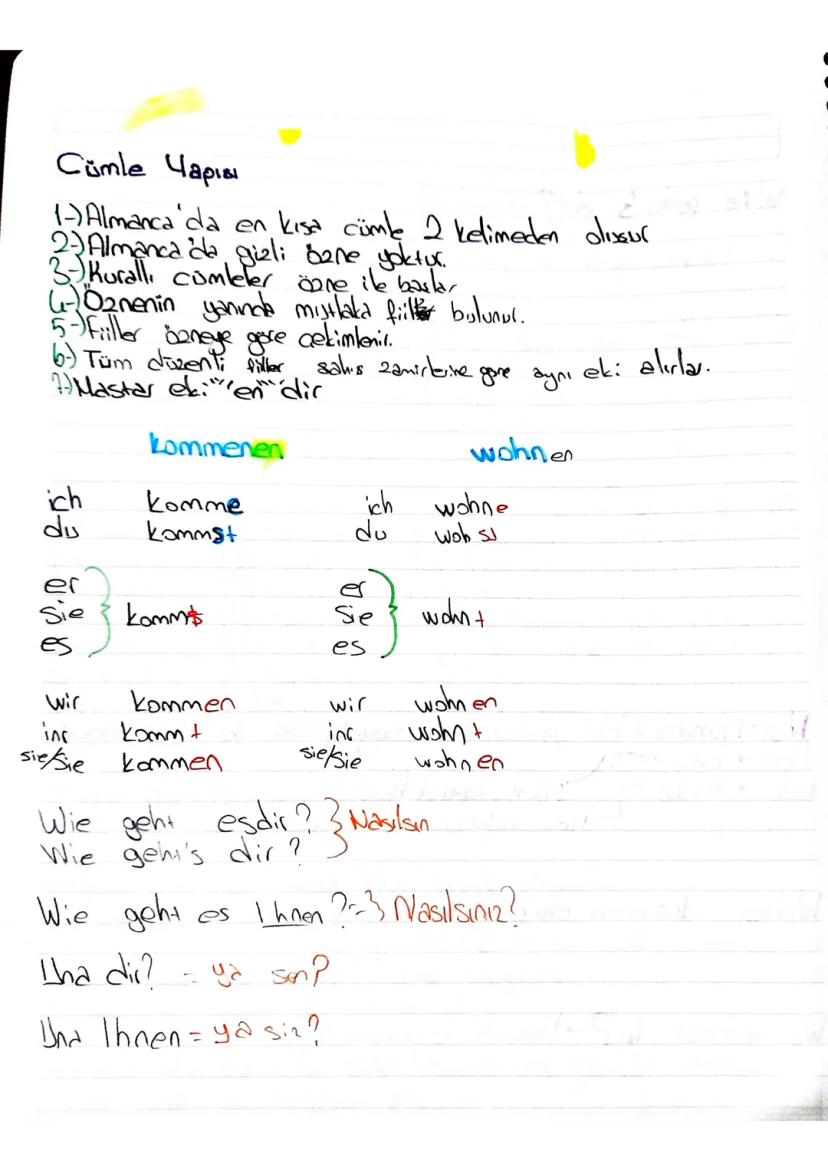 Cümle Yapısı
1-) Almanca'da en kısa cümle 2 kelimeden oluşur
2-) Almanca'da gizli özne yoktur.
3-) Kurallı cümleler özne ile başlar
4-) Öznenin yanında mutlaka fiil bulunur.
5-) Fiiller özneye göre çekimlenir.
6-) Tüm düzenli fiiller şahıs zamirlerine göre aynı eki alırlar.
7-) Mastar eki "en" dir
kommenen wohnen
ich komme ich wohne
du kommst du wohst
er er
sie kommt sie wohnt
es es
wir kommen wir wohnen
ihr kommt ihr wohnt
sie/Sie kommen sie/Sie wohnen
Wie geht es dir? } Nasılsın
Wie geht's dir?
Wie geht es Ihnen? = } Nasılsınız?
Und dir? = ya sen?
Und Ihnen = ya siz?